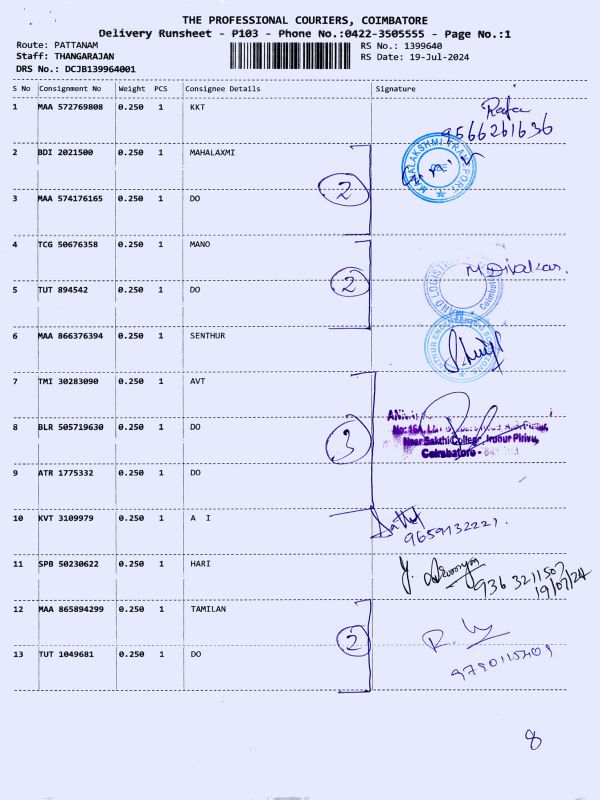 THE PROFESSIONAL COURIERS, COIMBATORE
Delivery Runsheet - P103 - Phone No.:0422-3505555 - Page No.:1
Route: PATTANAM
RS No.: 1399640
Staff: THANGARAJAN
RS Date: 19-Jul-2024
DRS No.: DCJB139964001
S No Consignment No Weight PCS Consignee Details Signature
1 MAA 572769808 0.250 1 KKT
Raja
9566261636
2 BDI 2021500 0.250 1 MAHALAXMI
MAHALAKSHMI TRANSPORT
2
3 MAA 574176165 0.250 1 DO
4 TCG 50676358 0.250 1 MANO
M Divakar.
MANO LOGISTI
Coimbat
2
5 TUT 894542 0.250 1 DO
6 MAA 866376394 0.250 1 SENTHUR
7 TMI 30283090 0.250 1 AVT
8 BLR 505719630 0.250 1 DO
3
No: 16A,
Near Sakthi College, Irugur Pirivu,
Coimbatore -
9 ATR 1775332 0.250 1 DO
10 KVT 3109979 0.250 1 A I
9659132221.
11 SPB 50230622 0.250 1 HARI
936 3211507
19/07/24
12 MAA 865894299 0.250 1 TAMILAN
2
13 TUT 1049681 0.250 1 DO
8